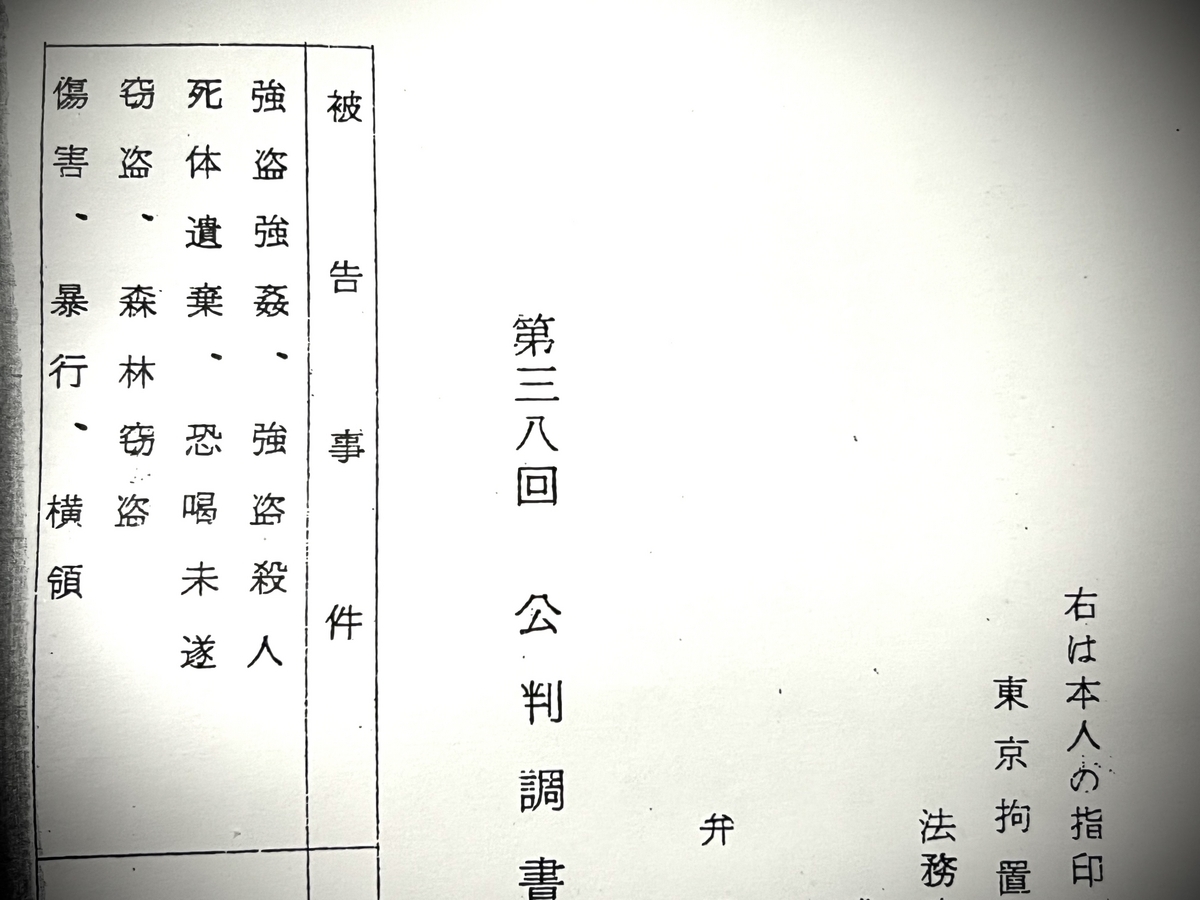 右は本人の指印
東京拘置
法務
弁
第三八回 公判調書
被告事件
強盗強姦、強盗殺人
死体遺棄、恐喝未遂
窃盗、森林窃盗
傷害、暴行、横領